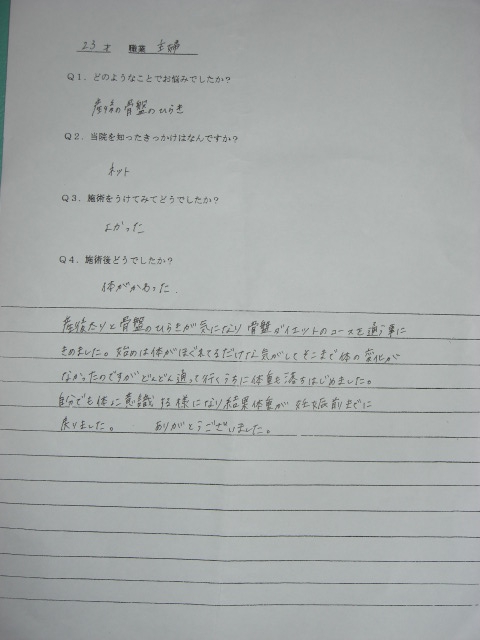 23才 職業 主婦
Q1. どのようなことでお悩みでしたか?
産後の骨盤のひらき
Q2. 当院を知ったきっかけはなんですか?
ネット
Q3. 施術をうけてみてどうでしたか?
よかった
Q4. 施術後どうでしたか?
体がかるかった.
産後太りと骨盤のひらきが気になり骨盤ダイエットのコースを通う事に
きめました。始めは体がほぐれてるだけな気がしてそこまで体の変化が
なかったのですがどんどん通って行くうちに体重も落ちはじめました。
自分でも体に意識する様になり結果体重が妊娠前までに
戻りました。 ありがとうございました。